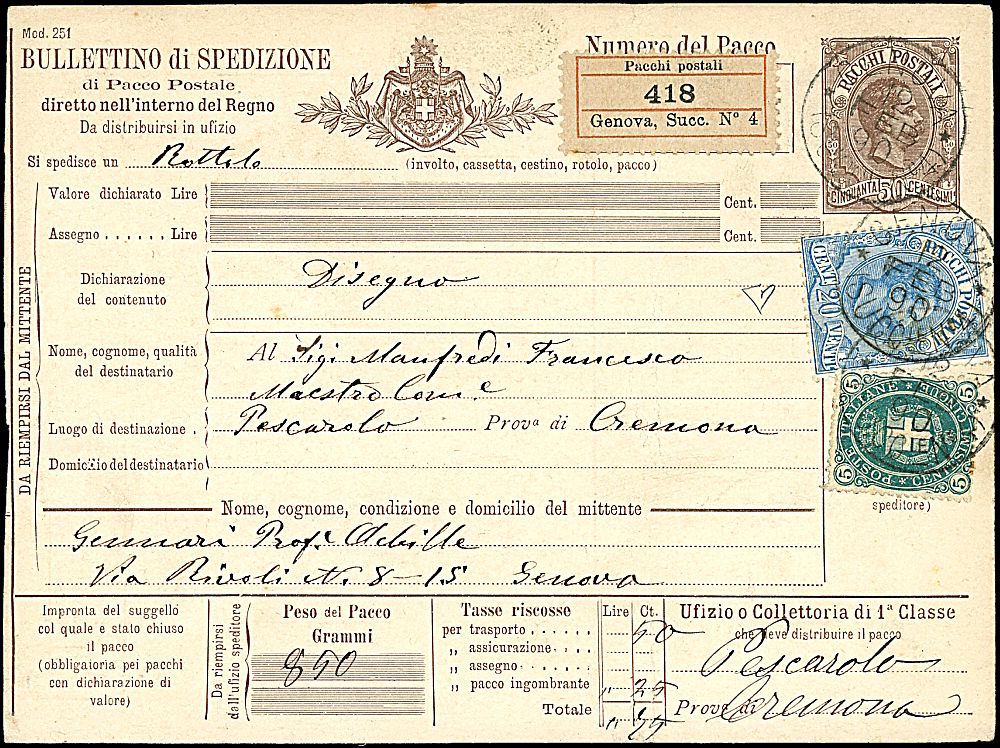 Mod. 251
BULLETTINO di SPEDIZIONE
di Pacco Postale
diretto nell'interno del Regno
Da distribuirsi in ufizio
Numero del Pacco
Pacchi postali
418
Genova, Succ. N° 4
PACCHI POSTALI
CINQUANTA 50 CENTESIMI
Si spedisce un Rottolo (involto, cassetta, cestino, rotolo, pacco)
DA RIEMPIRSI DAL MITTENTE
Valore dichiarato Lire Cent.
Assegno . . . . . . Lire Cent.
Dichiarazione
del contenuto
Disegno
Nome, cognome, qualità
del destinatario
Al Sigr Manfredi Francesco
Maestro Come
Luogo di destinazione . Pescarolo Prova di Cremona
Domicilio del destinatario
PACCHI POSTALI
CENT. 20 VENTI
GENOVA
FEB
90
POSTE ITALIANE
CENTESIMI CINQUE
5 5 5 5
speditore)
Nome, cognome, condizione e domicilio del mittente
Gennari Profe Achille
Via Rivoli N. 8-15 Genova
Impronta del suggello
col quale e stato chiuso
il pacco
(obbligatoria pei pacchi
con dichiarazione di
valore)
Da riempirsi
dall'ufizio speditore
Peso del Pacco
Grammi
850
Tasse riscosse Lire Ct.
per trasporto . . . . . . 50
„ assicurazione . . . .
„ assegno . . . . . .
„ pacco ingombrante „ 25
Totale „ 75
Ufizio o Collettoria di 1ª Classe
che deve distribuire il pacco
Pescarolo
Prova di Cremona